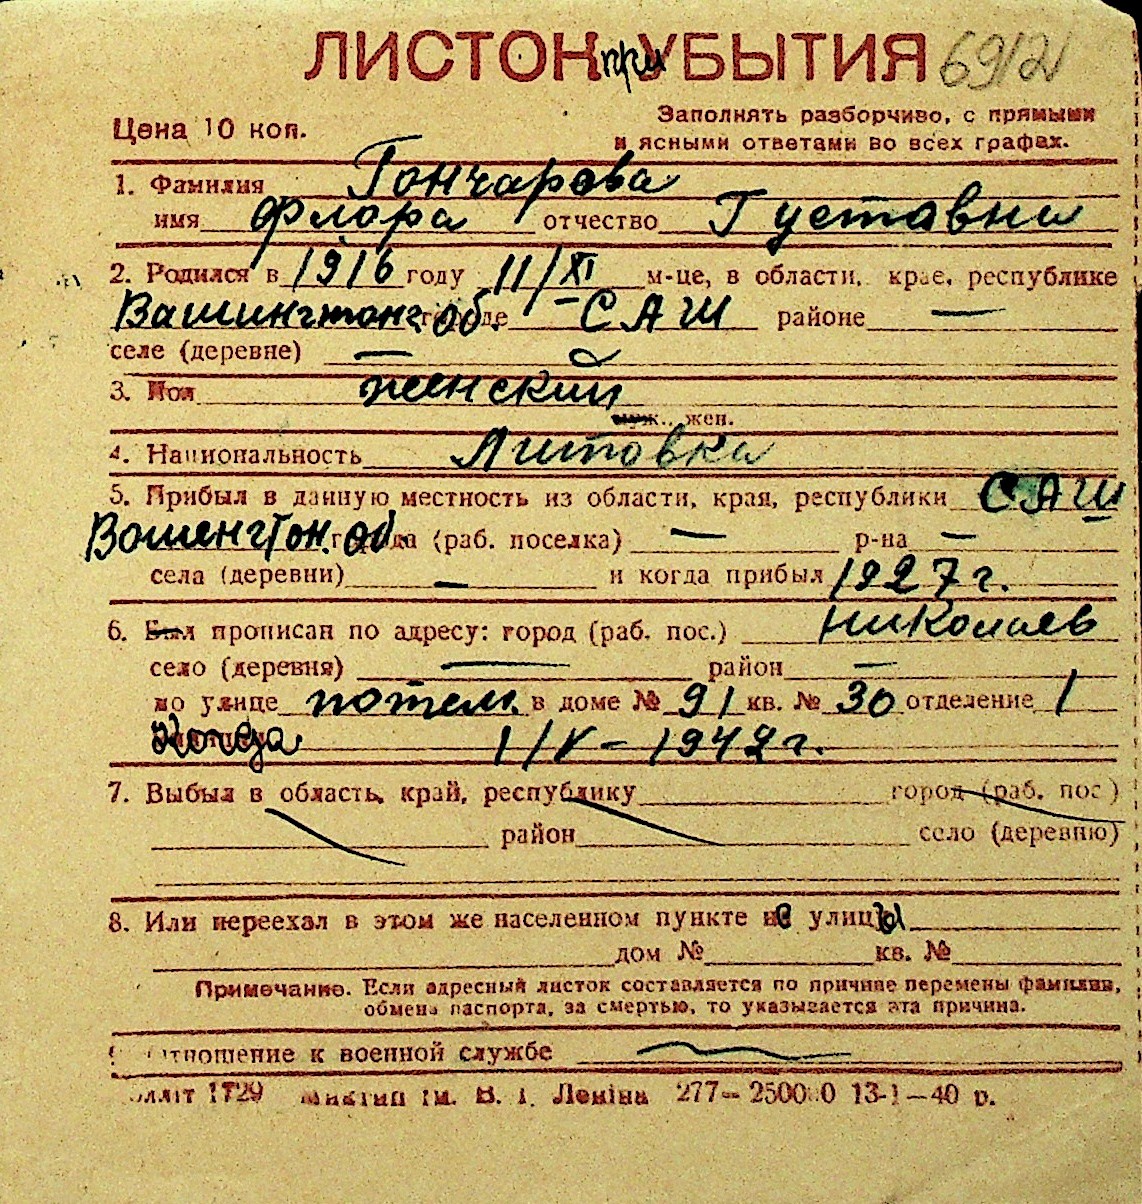 ЛИСТОК при УБЫТИЯ 6912
Цена 10 коп.
Заполнять разборчиво, с прямыми
и ясными ответами во всех графах.
1. Фамилия Гончарова
имя Флора отчество Густавни
2. Родился в 1916 году 11/XI м-це, в области, крае, республике
Вашингтонг. об. САШ районе —
селе (деревне) —
3. Пол женский
муж., жен.
4. Национальность Литовка
5. Прибыл в данную местность из области, края, республики САШ
Вошенгтон. об. города (раб. поселка) — р-на —
села (деревни) — и когда прибыл 1927 г.
6. Был прописан по адресу: город (раб. пос.) Николаев
село (деревня) — район —
по улице потем. в доме № 91 кв. № 30 отделение 1
Когда 1/V – 1942 г.
7. Выбыл в область, край, республику город (раб. пос.)
район село (деревню)
8. Или переехал в этом же населенном пункте с улицы
дом № кв. №
Примечание. Если адресный листок составляется по причине перемены фамилии,
обмена паспорта, за смертью, то указывается эта причина.
Отношение к военной службе
1729 ім. В. І. Леніна 277— 13-1—40 р.